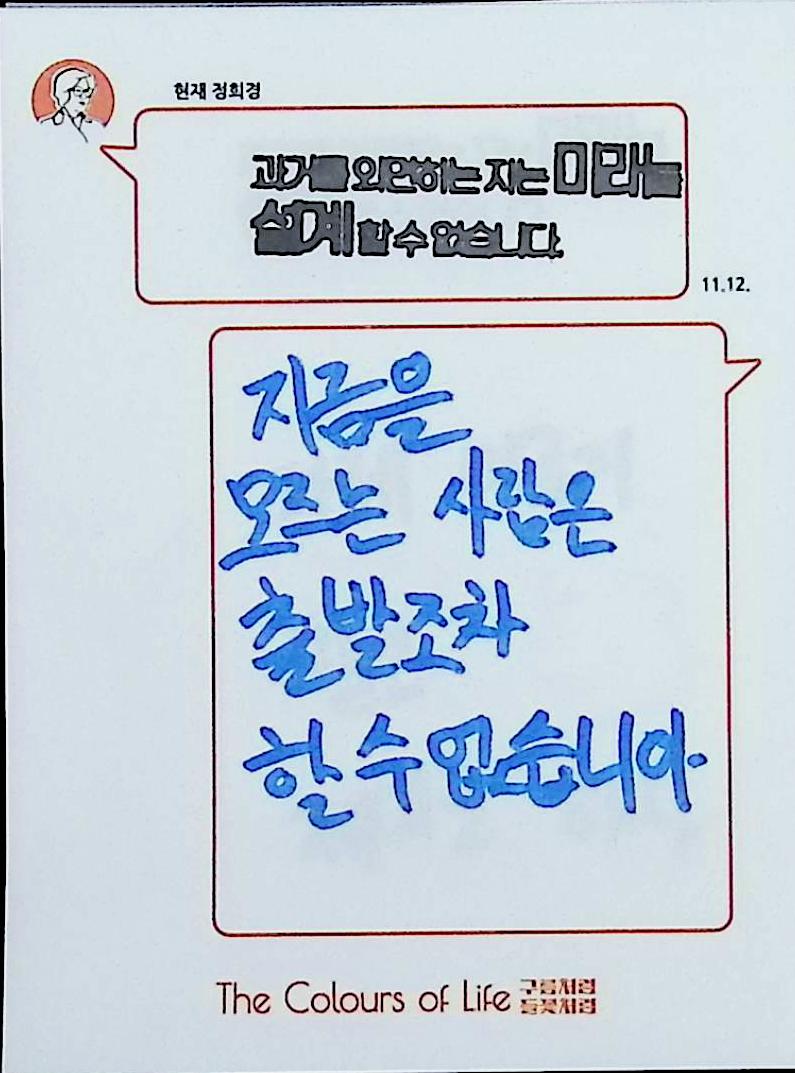 현재 정희경
과거를 외면하는 자는 미래를
설계 할 수 없습니다.
11.12.
지금을
모르는 사람은
출발조차
할 수 없습니다.
The Colours of Life 구름처럼
들꽃처럼